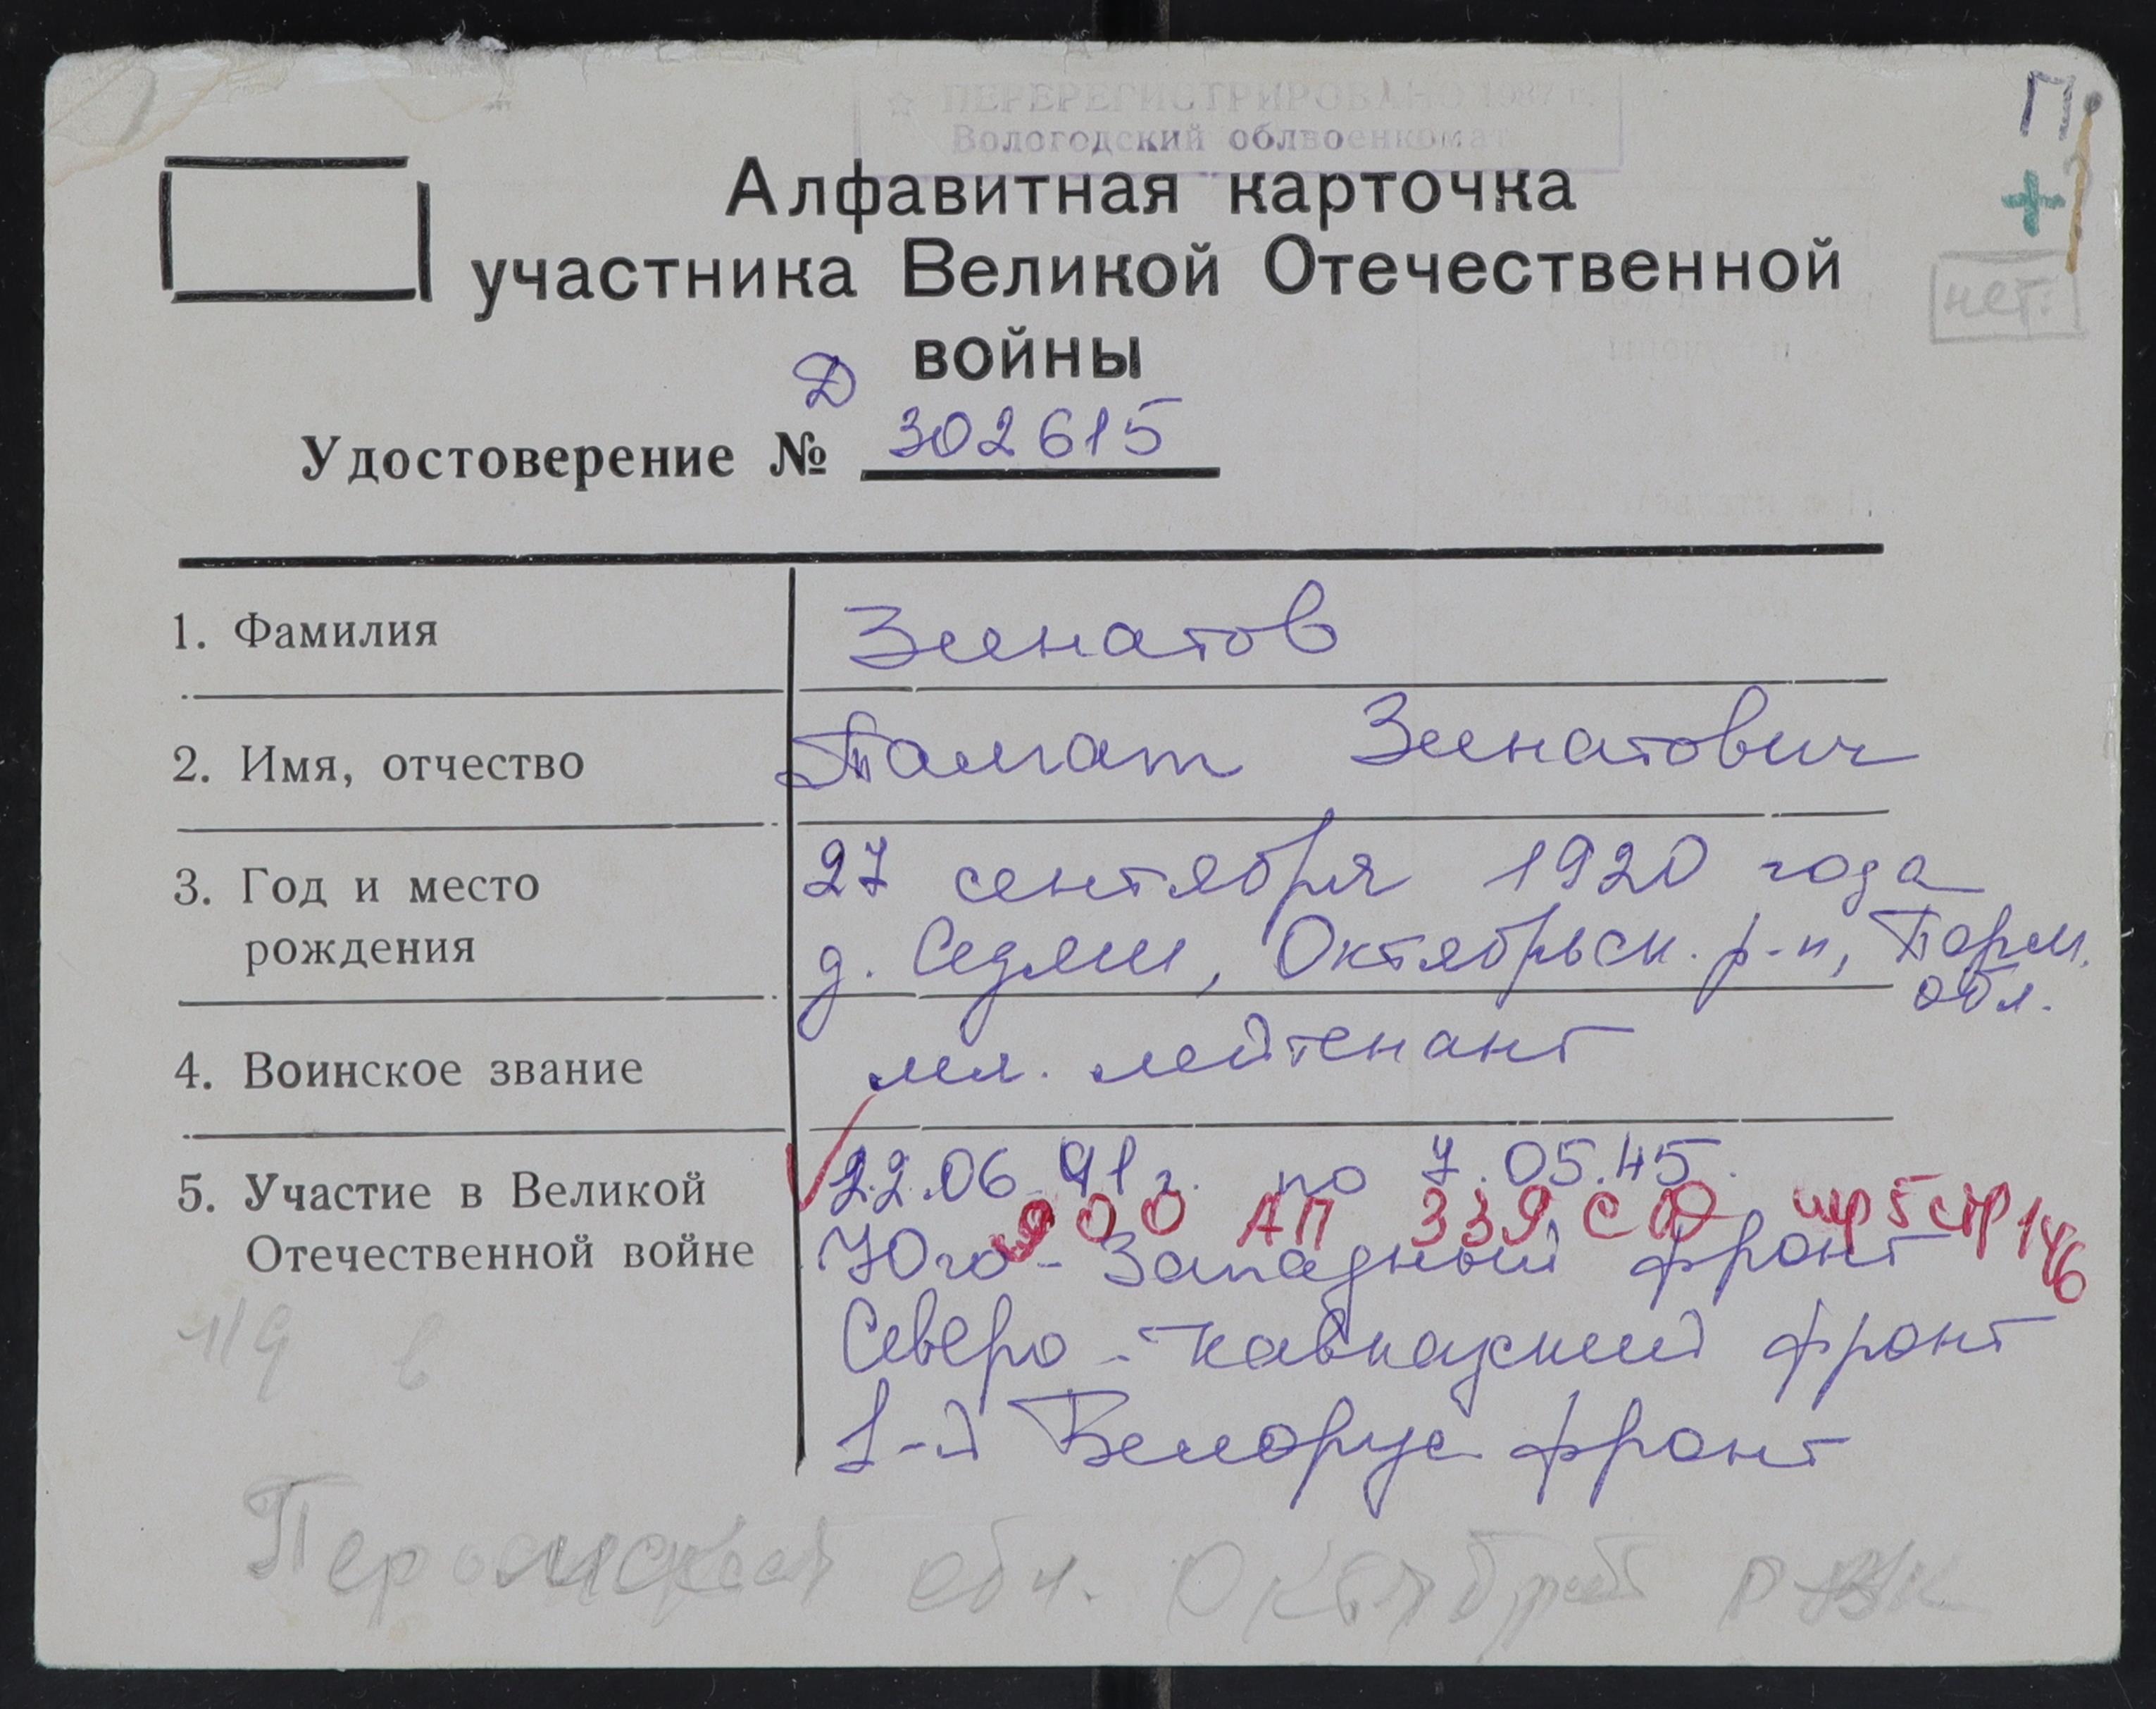 ☆ ПЕРЕРЕГИСТРИРОВАНО 1987 г.
Вологодский облвоенкомат
П
+
нет.
Алфавитная карточка
участника Великой Отечественной
войны
Д
Удостоверение № 302615
1. Фамилия
Зинатов
2. Имя, отчество
Зинатович
3. Год и место
рождения
27 сентября 1920 года
д. Седяш, Октябрьск. р-н, Перм.
обл.
4. Воинское звание
мл. лейтенант
5. Участие в Великой
Отечественной войне
22.06.41 г. по 7.05.45.
900 АП 339 СД пер 5 стр 146
Юго-Западный фронт
Северо-Кавказский фронт
1-й Белорус фронт
Пермская обл. Октябрьский РВК